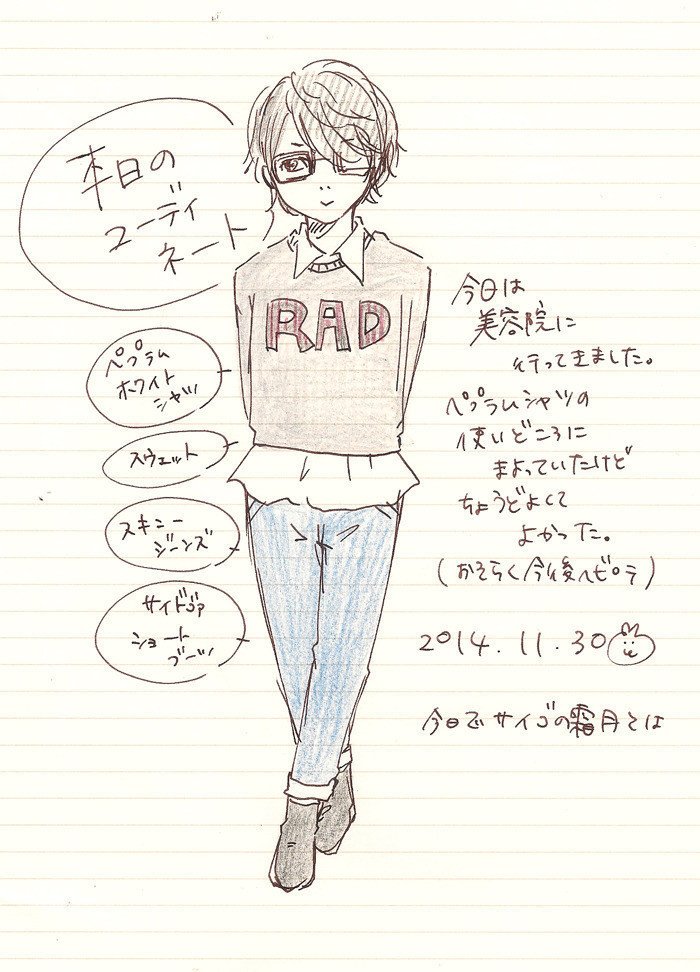 本日の
コーディ
ネート
RAD
ペプラム
ホワイト
シャツ
スウェット
スキニー
ジーンズ
サイドゴア
ショート
ブーツ
今日は
美容院に
行ってきました。
ペプラムシャツの
使いどころに
まよっていたけど
ちょうどよくて
よかった。
(おそらく今後ヘビロテ)
2014.11.30
今日でサイゴの霜月とは